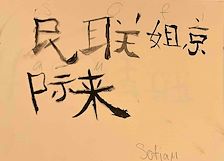 民联姐京
际来
Sofiam